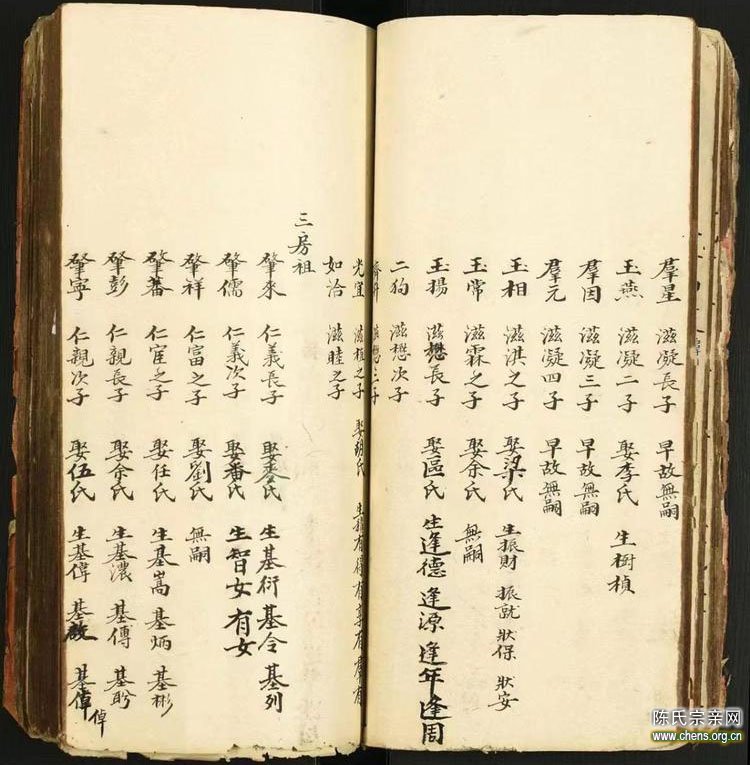 羣星 滋凝長子 早故無嗣
玉燕 滋凝二子 娶李氏 生樹楨
羣因 滋凝三子 早故無嗣
羣元 滋凝四子 早故無嗣
玉相 滋淇之子 娶梁氏 生振財 振就 狀保 狀安
玉常 滋霖之子 娶余氏 無嗣
玉揚 滋懋長子 娶區氏 生逢德 逢源 逢年 逢周
二狗 滋懋次子
滋懋三子
光宜 滋植之子 娶胡氏
如洽 滋睦之子
三房祖
肇來 仁義長子 娶麥氏 生基衍 基令 基列
肇儒 仁義次子 娶番氏 生智女 有女
肇祥 仁富之子 娶劉氏 無嗣
肇蕃 仁宦之子 娶任氏 生基嵩 基炳 基彬
肇彭 仁親長子 娶余氏 生基濃 基傳 基盻
肇寧 仁親次子 娶伍氏 生基倳 基啟 基偉
倬
陈氏宗亲网
www.chens.org.cn